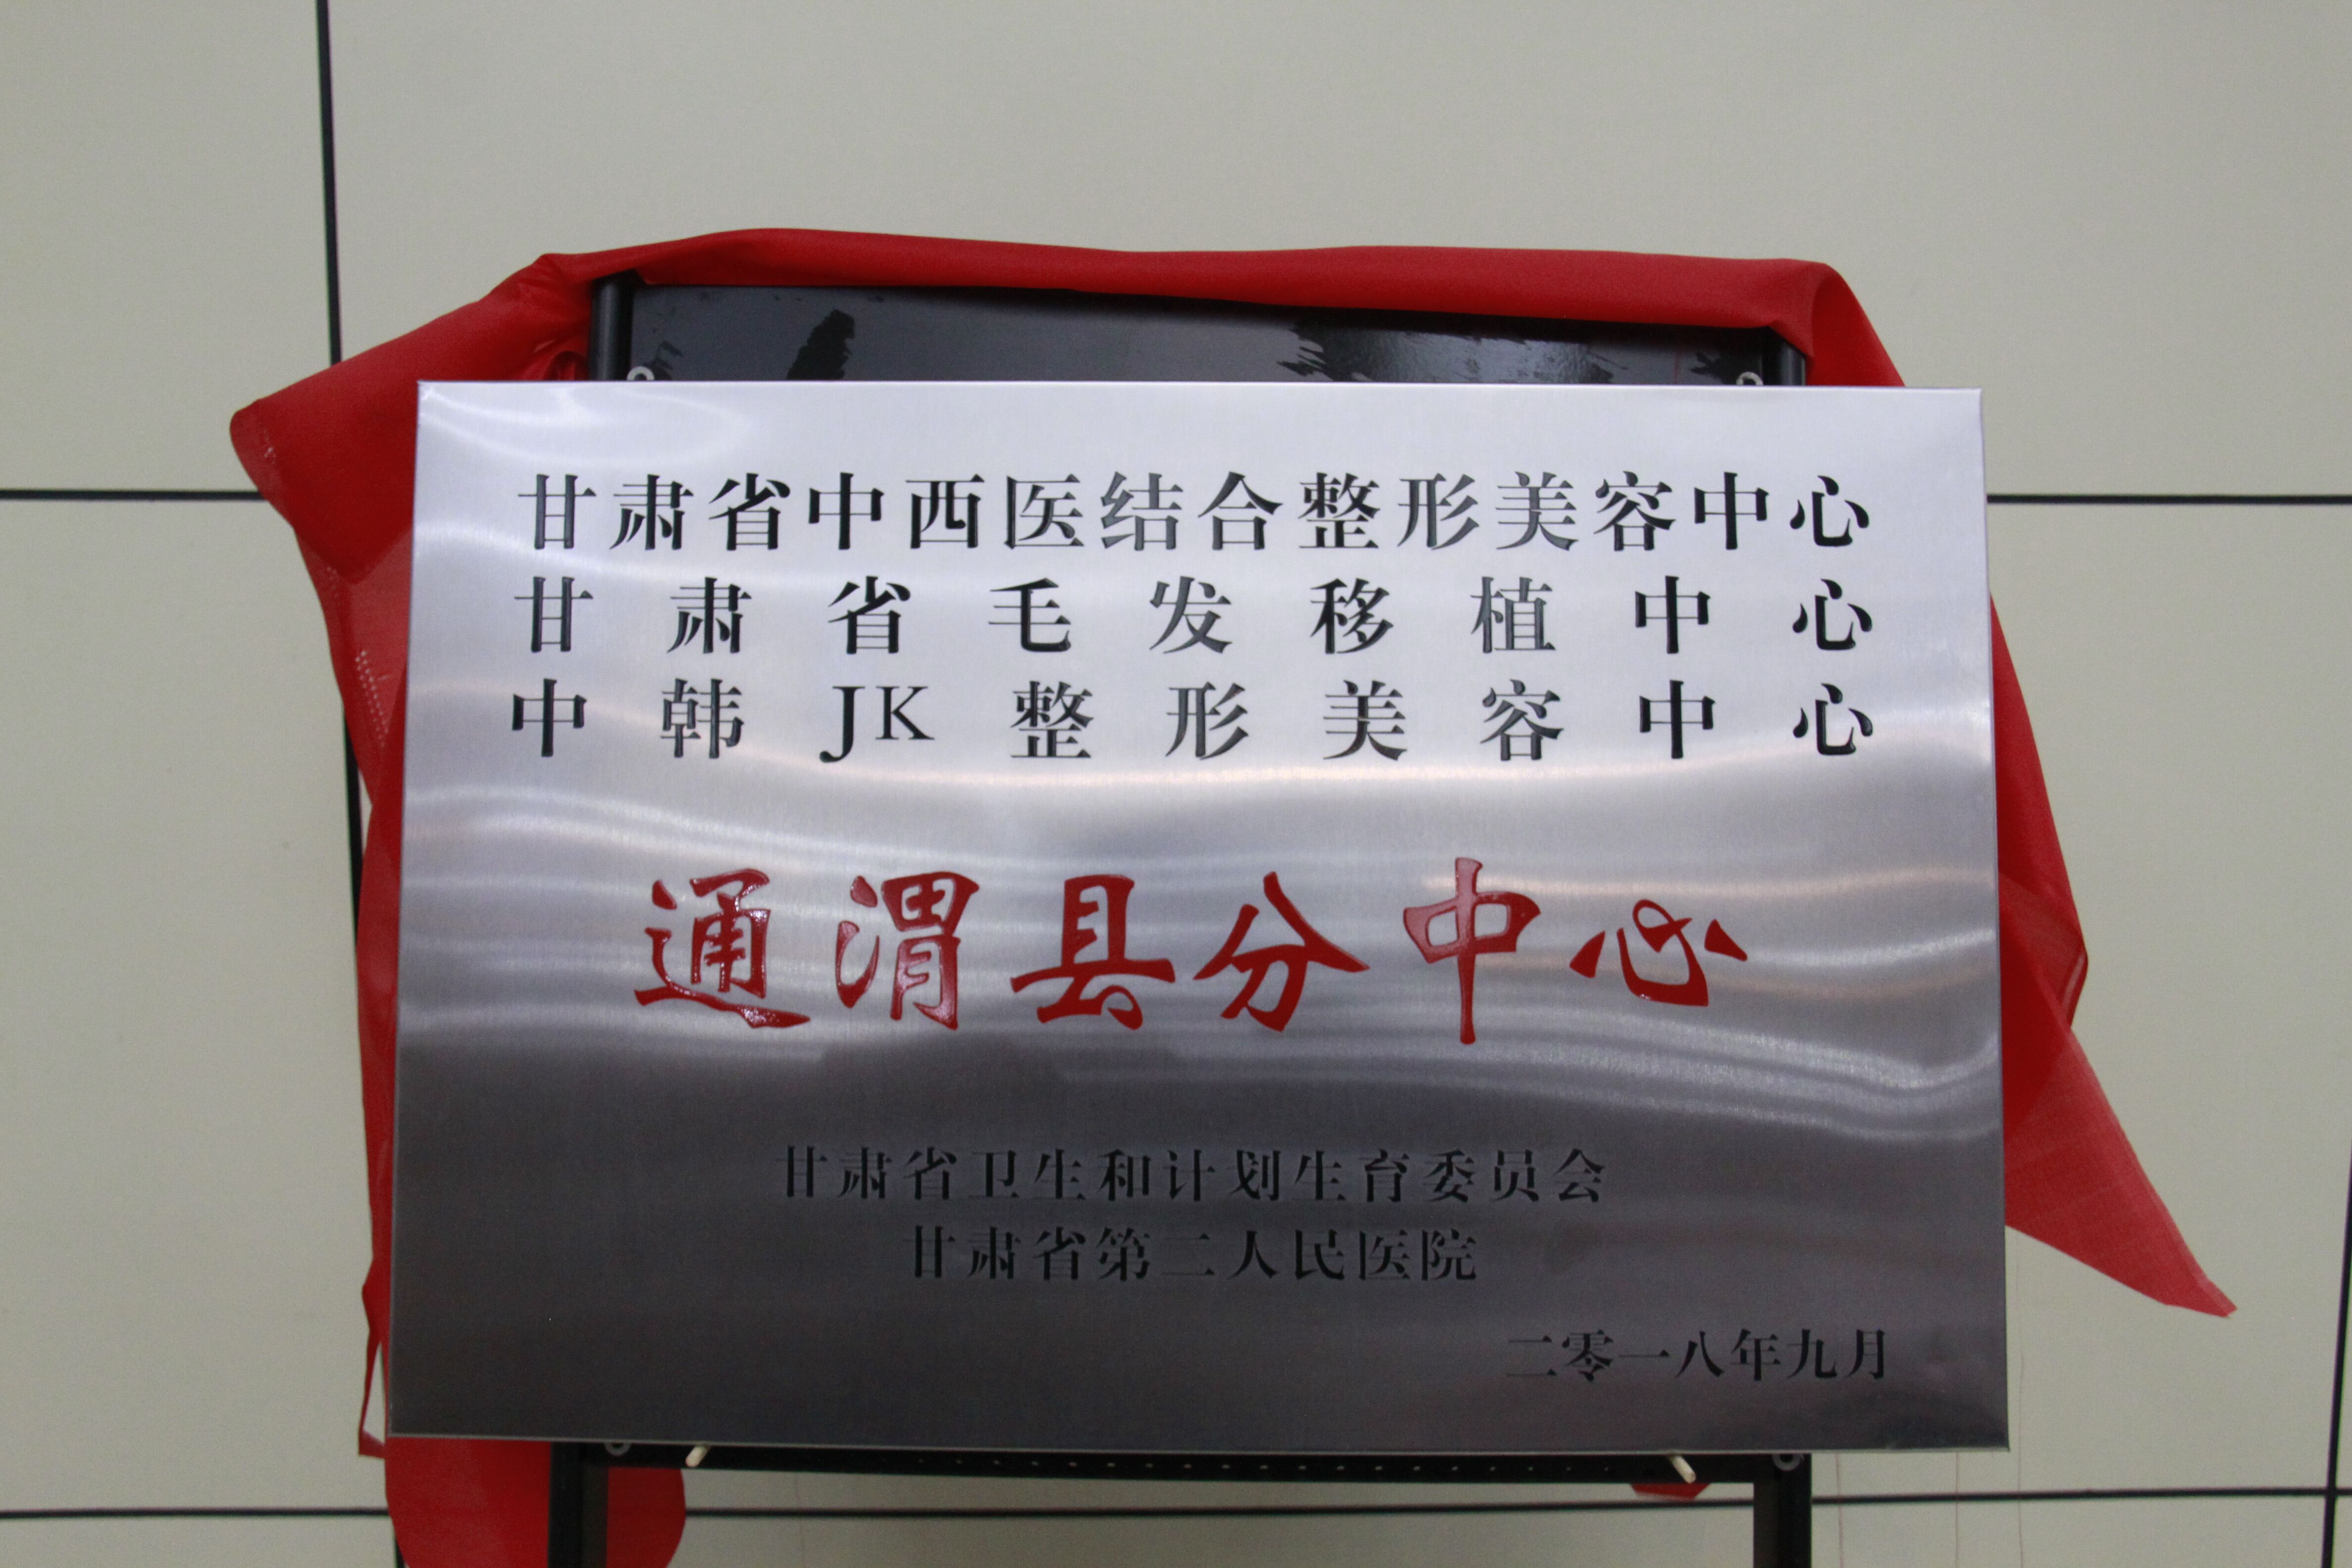 甘肃省中西医结合整形美容中心
甘肃省毛发移植中心
中韩JK整形美容中心
通渭县分中心
甘肃省卫生和计划生育委员会
甘肃省第二人民医院
二零一八年九月